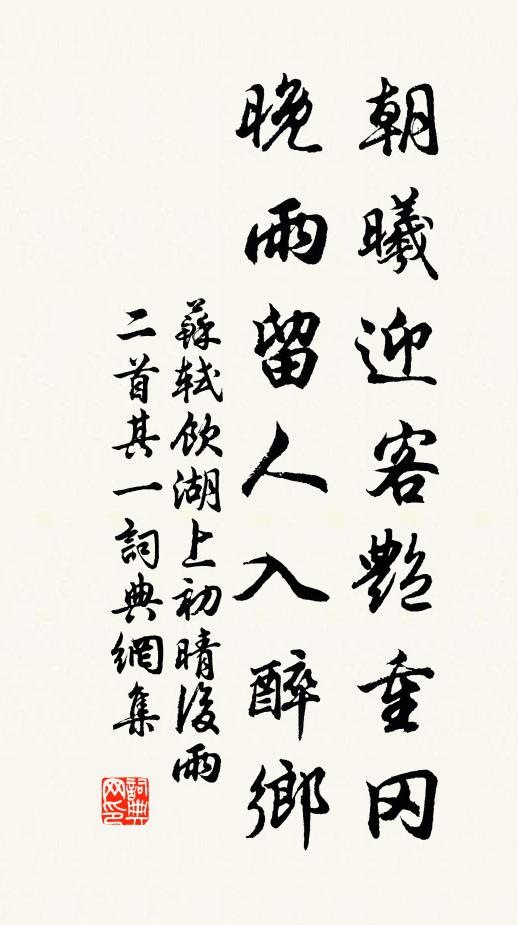 朝曦迎客艷重冈
晚雨留人入醉鄉
蘇軾飲湖上初晴後雨
二首其一詞典網集
詞典网印